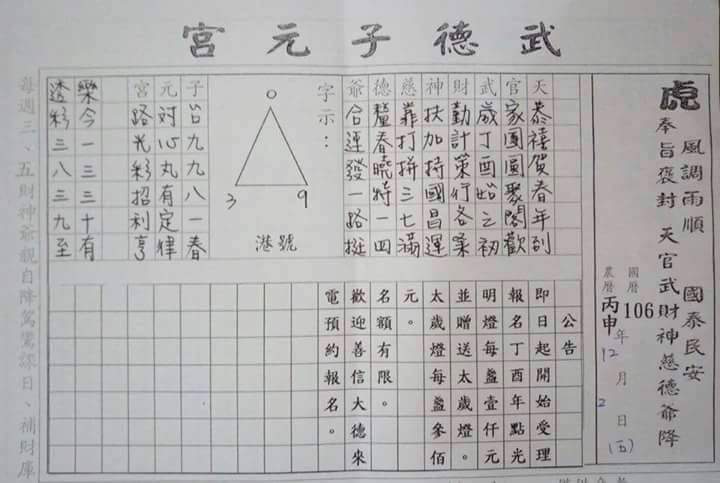 武德子元宮
風調雨順 國泰民安
虎 奉旨褒封 天官武財神慈德爺降
國曆 106 年 12 月 2 日 (五)
農曆 丙申
天恭禧賀春年到
官家團圓聚閤歡
武歲丁酉始之初
財勤計策行各業
神扶加持國昌運
慈靠打拼三七滿
德釐春曉特一四
爺合運發一路挺
字示：
0
3 9
港號
子台九九八一春
元対心丸有定律
宮路光彩招利亨
樂今一三三十有
透彩三八三九至
公告
即日起開始受理
報名丁酉年點光
明燈每盞壹仟元
並贈送太歲燈。
太歲燈每盞參佰
元。
名額有限。
歡迎善信大德來
電預約報名。
每週三、五財神爺親自降駕鸞課日、補財庫